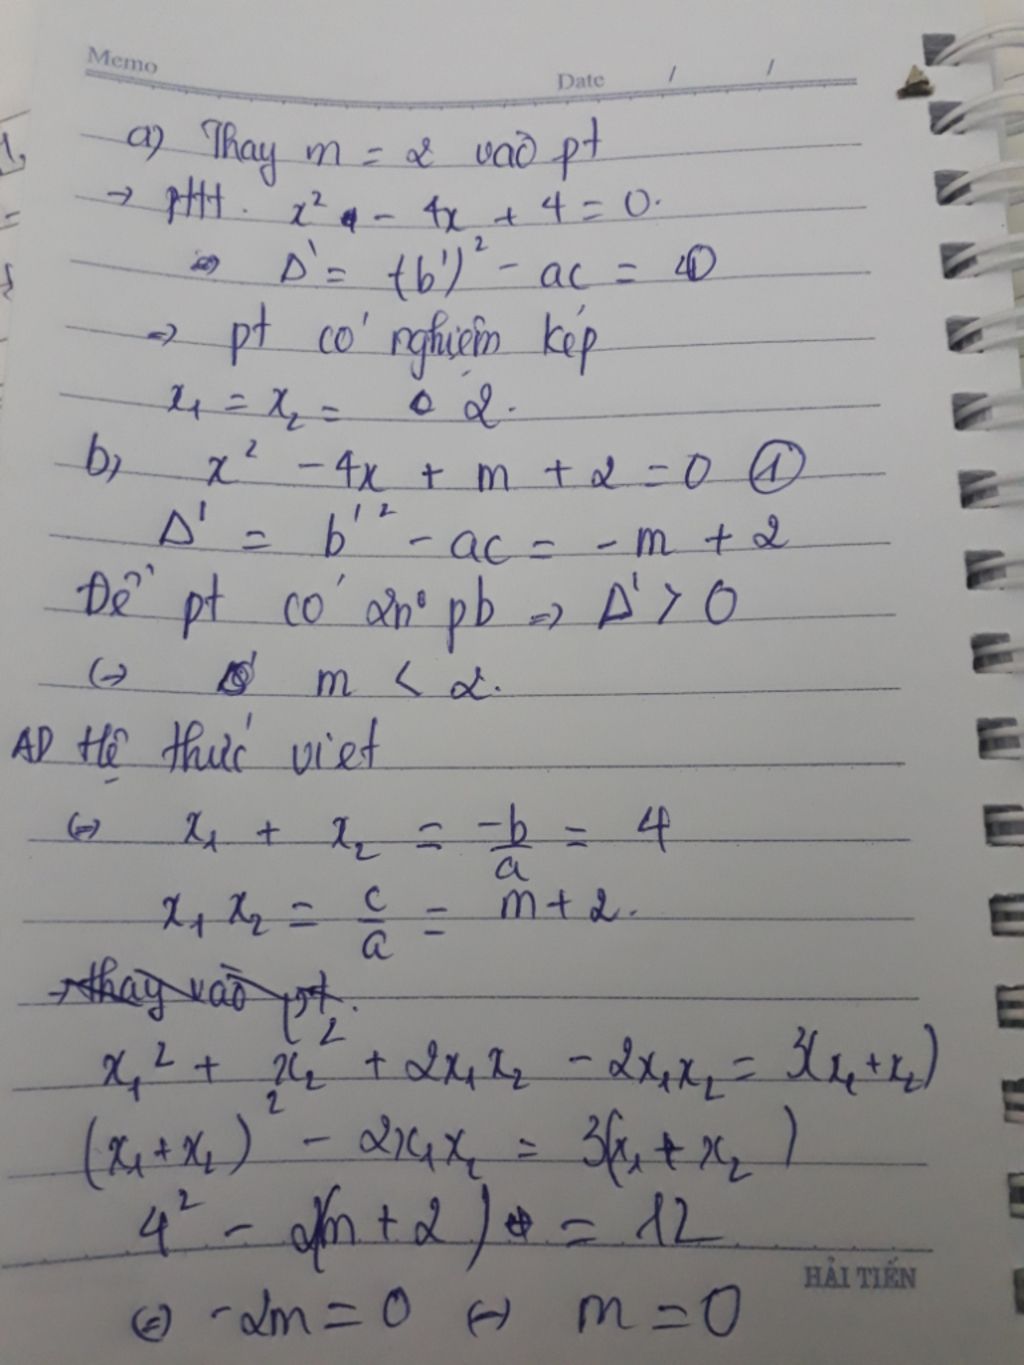 Memo
Date / /
a) Thay m = 2 vào pt
→ ptt. x² - 4x + 4 = 0.
⇒ Δ' = (b')² - ac = 0
⇒ pt có nghiệm kép
x₁ = x₂ = 2.
b) x² - 4x + m + 2 = 0 ①
Δ' = b'² - ac = -m + 2
Để pt có 2n⁰ pb ⇒ Δ' > 0
(→) m < 2.
AD Hệ thức viet
(=) x₁ + x₂ = -b/a = 4
x₁ x₂ = c/a = m + 2.
→ thay vào pt.
x₁² + x₂² + 2x₁x₂ - 2x₁x₂ = 3(x₁+x₂)
(x₁+x₂)² - 2x₁x₂ = 3(x₁ + x₂)
4² - 2(m + 2) = 12
(=) -2m = 0 (→) m = 0
HẢI TIẾN